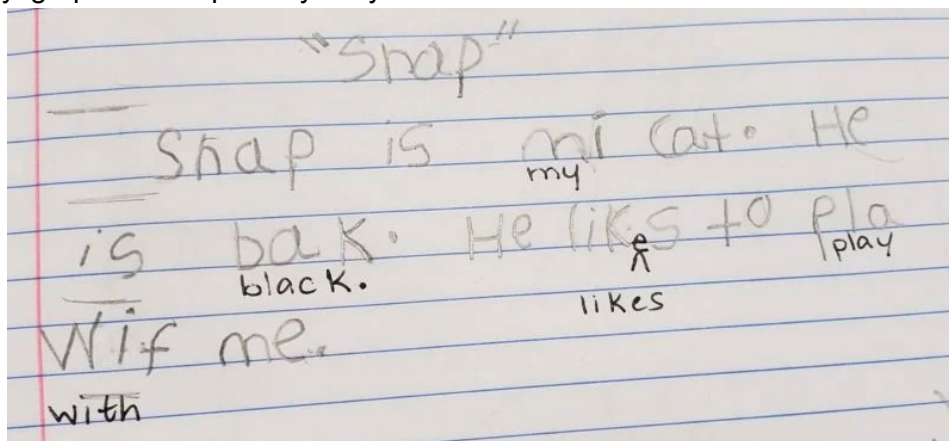 "Snap"
Snap is mi cat. He
my
is bak. He liks to pla
e
black. play
likes
Wif me.
with